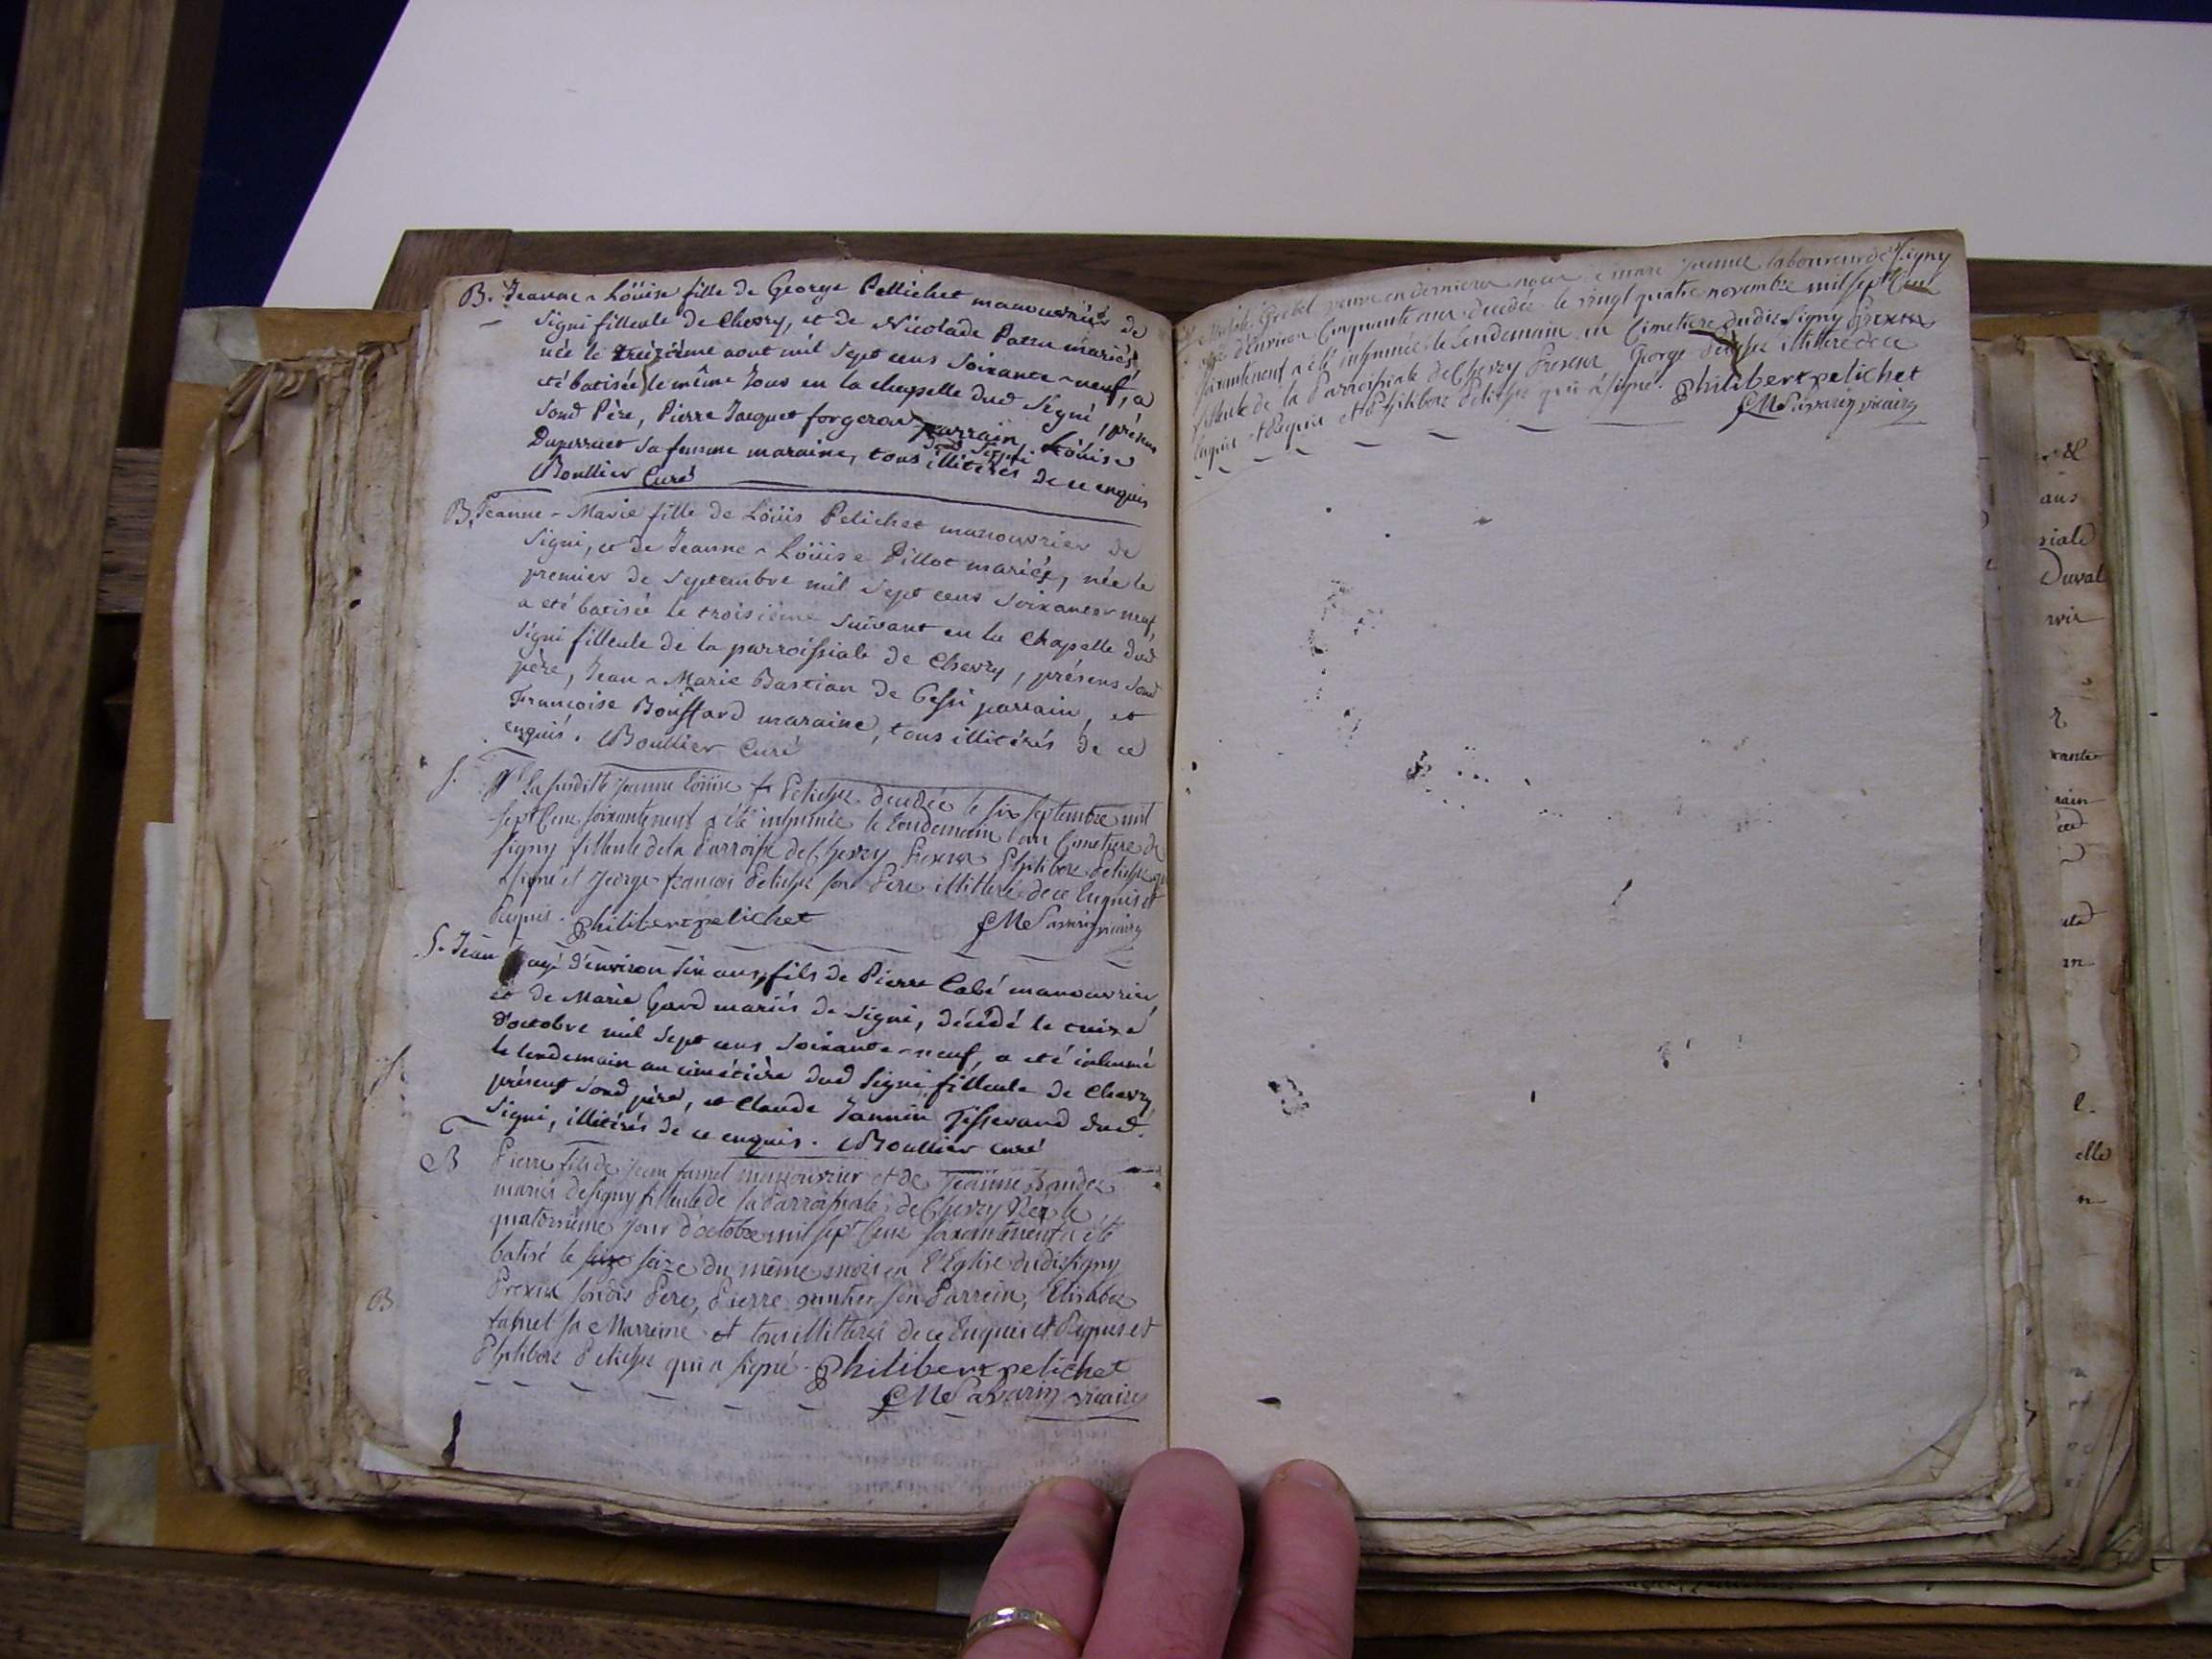 B. Jeanne-Löuise fille de George Pellichet manouvrier de
Signi filleule de Chevry, et de Nicolade Patru mariés,
née le treizième aout mil sept cens soixante-neuf, a
eté batisée le même jour en la chappelle dud Signi, présens
sond Père, Pierre Jacquet forgeron parrain, Löuise
dud Signi
Duperruet sa femme maraine, tous illitérés de ce enquis
Boullier Curé
B. Jeanne-Marie fille de Löuis Pelichet manouvrier de
Signi, et de Jeanne-Löuise Pillot mariés, née le
premier de Septembre mil sept cens soixante-neuf,
a eté batisée le troisième suivant en la Chapelle dud
Signi filleule de la parroissiale de Chevry, présens sond
père, Jean-Marie Bastian de Cessi parrain, et
Françoise Bouffard maraine, tous illitérés de ce
enquis. Boullier Curé
S. La susditte Jeanne Löuise Pelichet decedée le six septembre mil
sept Cent soixanteneuf a été inhumée le lendemain au Cimetiere de
Signy filleule de la Parroisse de Chevry Presens Philibert Pelichet qui
a signé et George françois Pelichet son Pere illitteré de ce Enquis et
Requis. Philibert pelichet
Savarin vicaire
S. Jean agé d'environ six ans, fils de Pierre Labé manouvrier,
et de Marie Gard mariés de Signi, décédé le onze
d'octobre mil sept cens soixante-neuf, a eté inhumé
le lendemain au cimétière dud Signi filleule de Chevry
présens sond père, et Claude Jannin Tisserand dud.
Signi, illitérés de ce enquis. Boullier curé
B Pierre fils de Jean manouvrier et de Jeanne
mariés de Signy filleule de la Parroissiale de Chevry Né le
quatorsième jour d'octobre mil sept Cent soixanteneuf a été
batisé le seize du même mois en l'Eglise dudit Signy
Presens sondit Pere, Pierre son Parrein, Elisabet
sa Marreine et tous illitterés de ce Enquis et Requis et
Philibert Pelichet qui a signé. Philibert pelichet
Savarin vicaire
veuve en dernieres noces laboureur de Signy
d'environ Cinquante ans decedée le vingt quatre novembre mil sept Cent
soixanteneuf a été inhumée le lendemain au Cimetiere dudit Signy
filleule de la Parroissiale de Chevry Presens George illitteré de ce
Enquis et Requis et Philibert Pelichet qui a signé. Philibert pelichet
Savarin vicaire